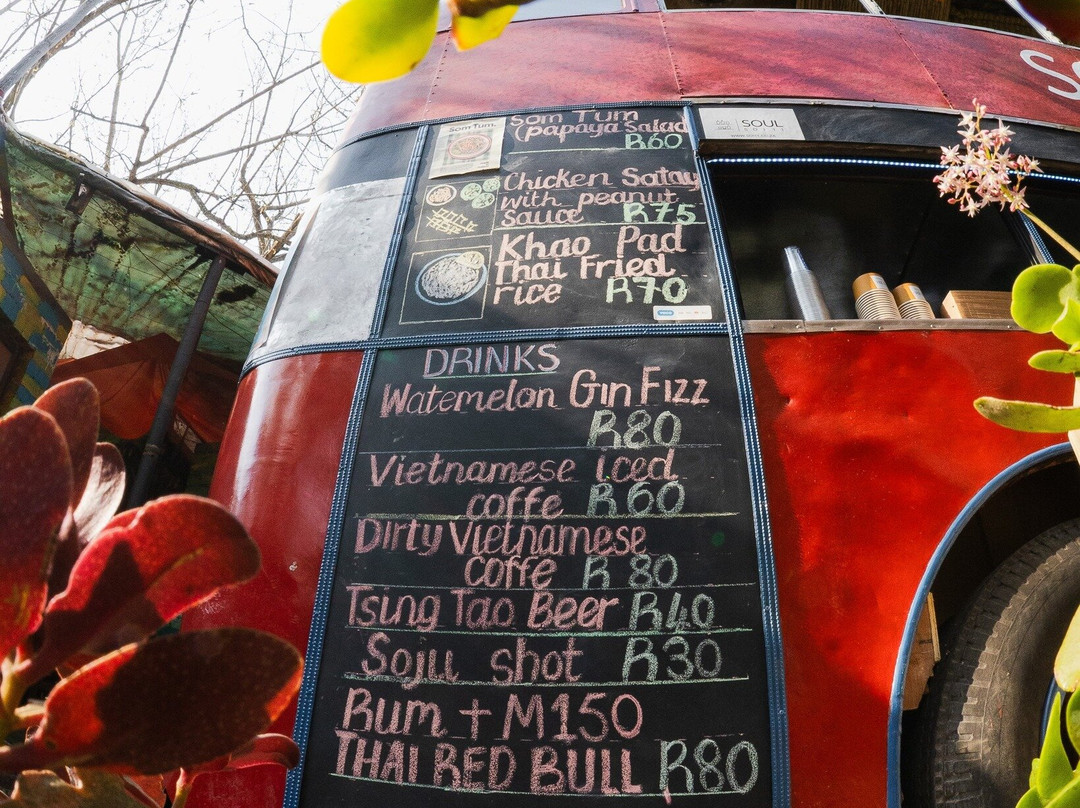 Som Tum
(papaya Salad
R60
Som Tum.
Chicken Satay
with peanut
Sauce R75
Khao Pad
Thai Fried
rice R70
DRINKS
Watemelon Gin Fizz
R80
Vietnamese iced
coffe R60
Dirty Vietnamese
coffe R 80
Tsing Tao Beer R40
Soju shot R30
Rum + M150
THAI RED BULL R80
SOUL
So